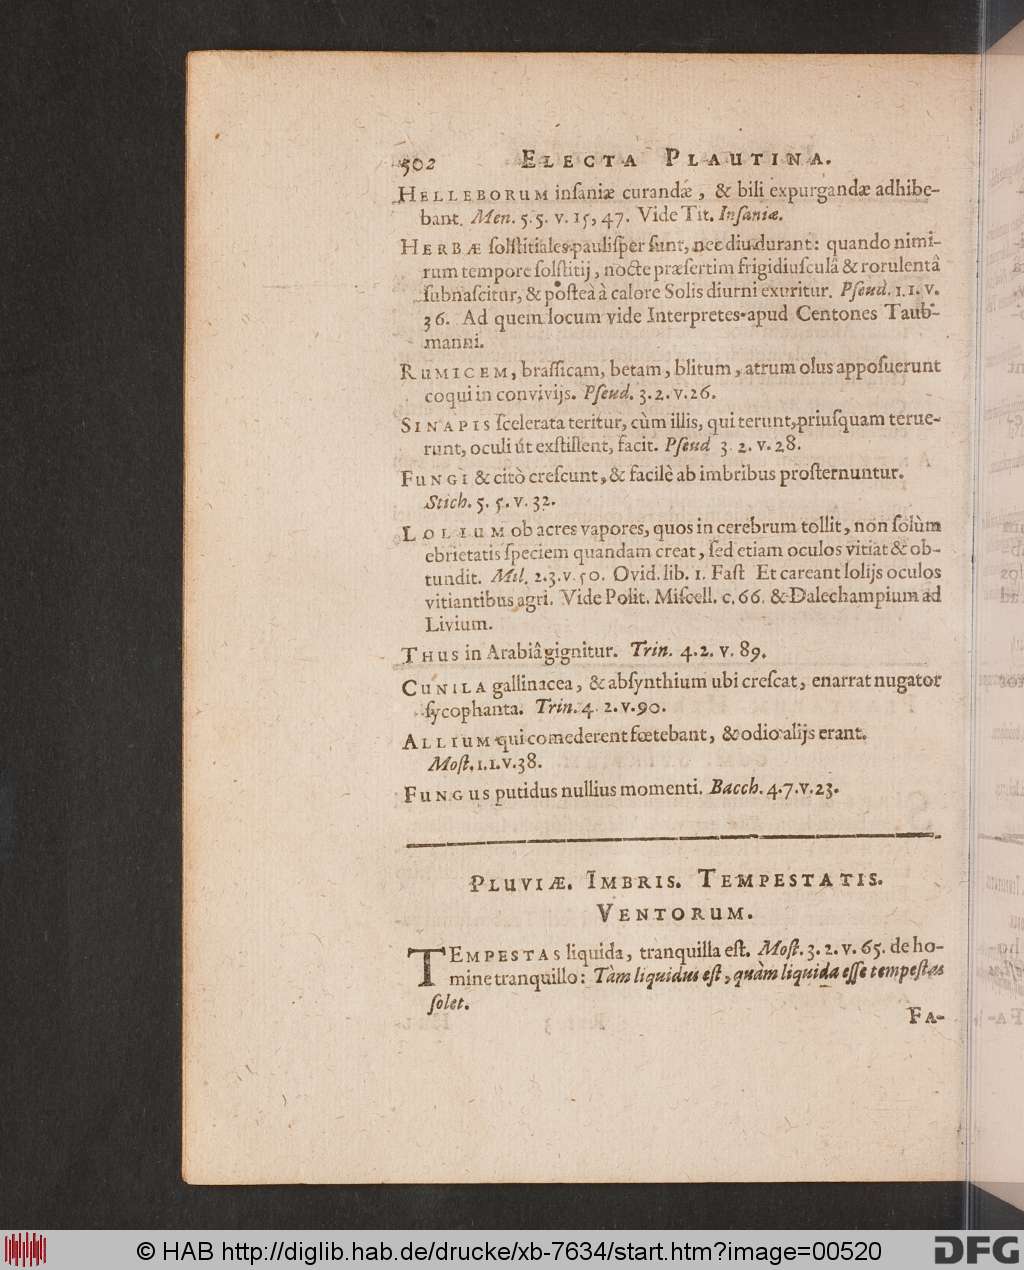 502 ELECTA PLAUTINA.
HELLEBORUM inſaniæ curandæ, & bili expurgandæ adhibe-
bant. Men. 5. 5. v. 15, 47. Vide Tit. Inſaniæ.
HERBÆ ſolſtitiales pauliſper ſunt, nec diu durant: quando nimi-
rum tempore ſolſtitij, nocte præſertim frigidiuſculâ & rorulentâ
ſubnaſcitur, & poſteà à calore Solis diurni exuritur. Pſeud. 1.1. v.
36. Ad quem locum vide Interpretes apud Centones Taub-
manni.
RUMICEM, braſſicam, betam, blitum, atrum olus appoſuerunt
coqui in convivijs. Pſeud. 3. 2. v. 26.
SINAPIS ſcelerata teritur, cùm illis, qui terunt, priuſquam terue-
runt, oculi út exſtiſlent, facit. Pſeud 3. 2. v. 28.
FUNGI & citò creſcunt, & facilè ab imbribus proſternuntur.
Stich. 5. 5. v. 32.
LOLIUM ob acres vapores, quos in cerebrum tollit, non ſolùm
ebrietatis ſpeciem quandam creat, ſed etiam oculos vitiat & ob-
tundit. Mil. 2. 3. v. 50. Ovid. lib. 1. Faſt Et careant lolijs oculos
vitiantibus agri. Vide Polit. Miſcell. c. 66. & Dalechampium ad
Livium.
THUS in Arabiâ gignitur. Trin. 4. 2. v. 89.
CUNILA gallinacea, & abſynthium ubi creſcat, enarrat nugator
ſycophanta. Trin. 4. 2. v. 90.
ALLIUM qui comederent fœtebant, & odio alijs erant.
Moſt. 1. 1. v. 38.
FUNGUS putidus nullius momenti. Bacch. 4. 7. v. 23.
PLUVIÆ. IMBRIS. TEMPESTATIS.
VENTORUM.
TEMPESTAS liquida, tranquilla eſt. Moſt. 3. 2. v. 65. de ho-
mine tranquillo: Tàm liquidus eſt, quàm liquida eſſe tempeſtas
ſolet.
FA-
© HAB http://diglib.hab.de/drucke/xb-7634/start.htm?image=00520
DFG